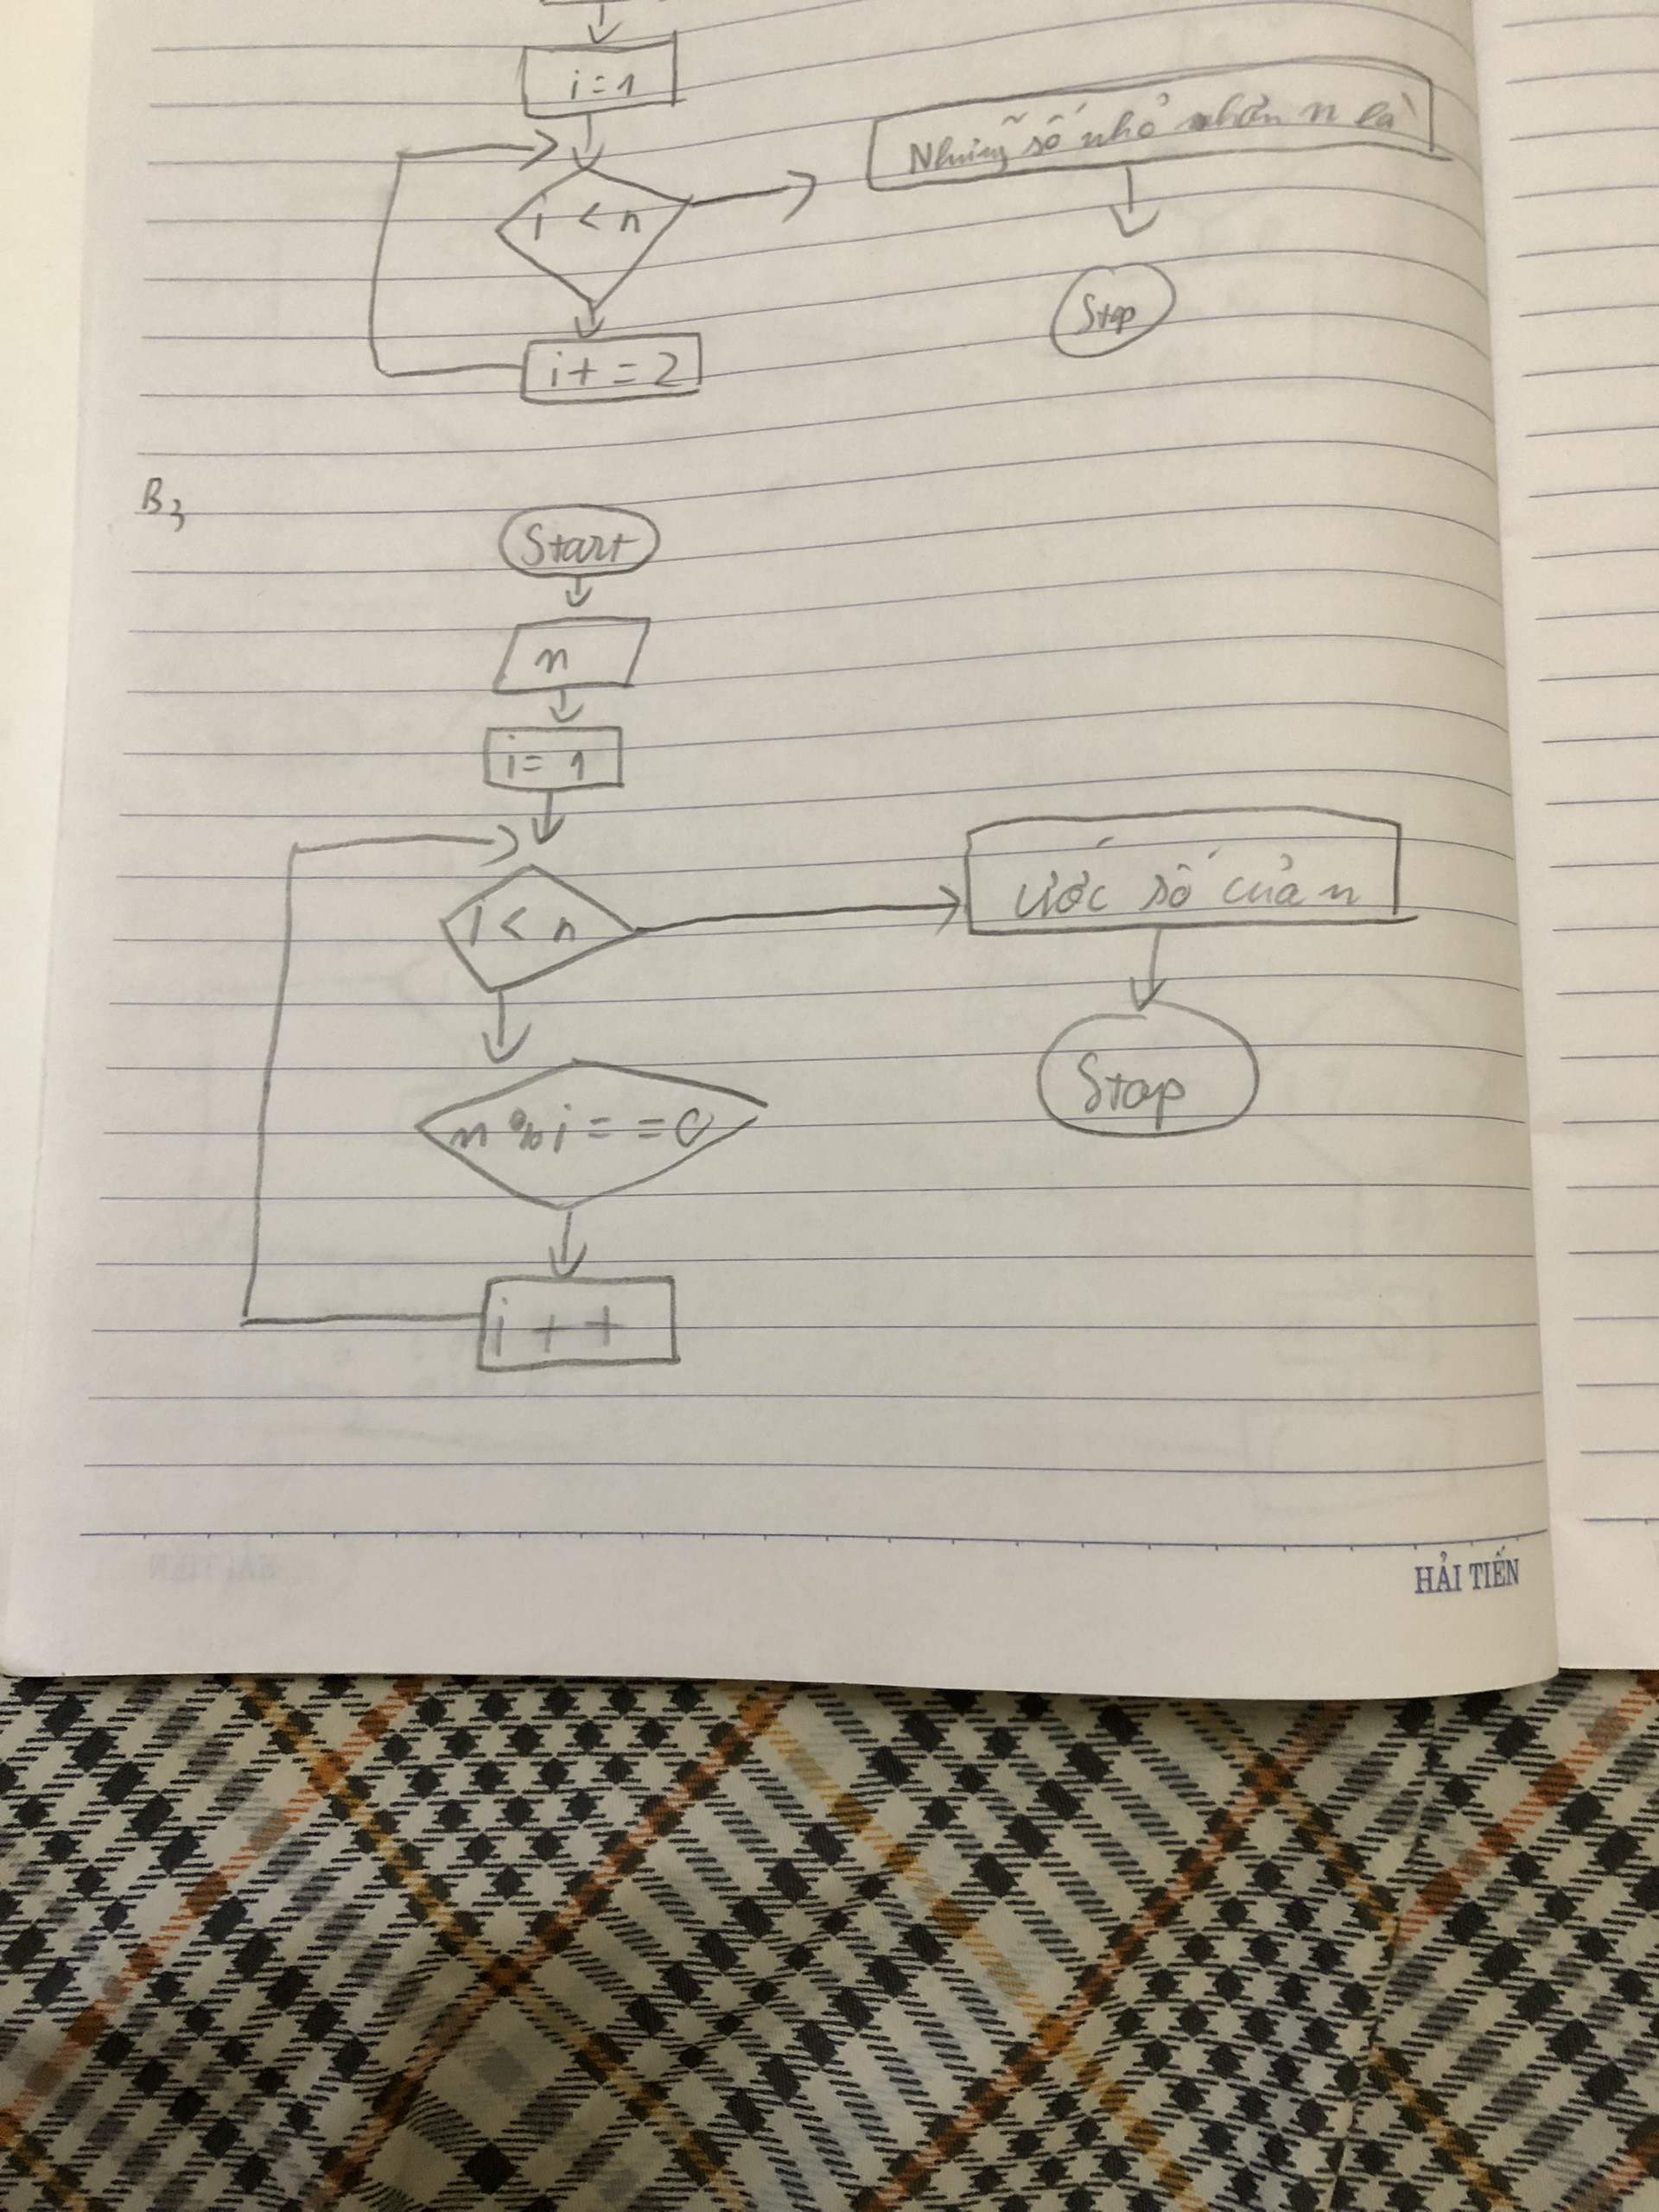 i=1
Những số nhỏ nhơn n là
i < n
Stop
i+=2
B3
Start
n
i=1
i < n
ước số của n
n%i==0
Stop
i++
HẢI TIẾN